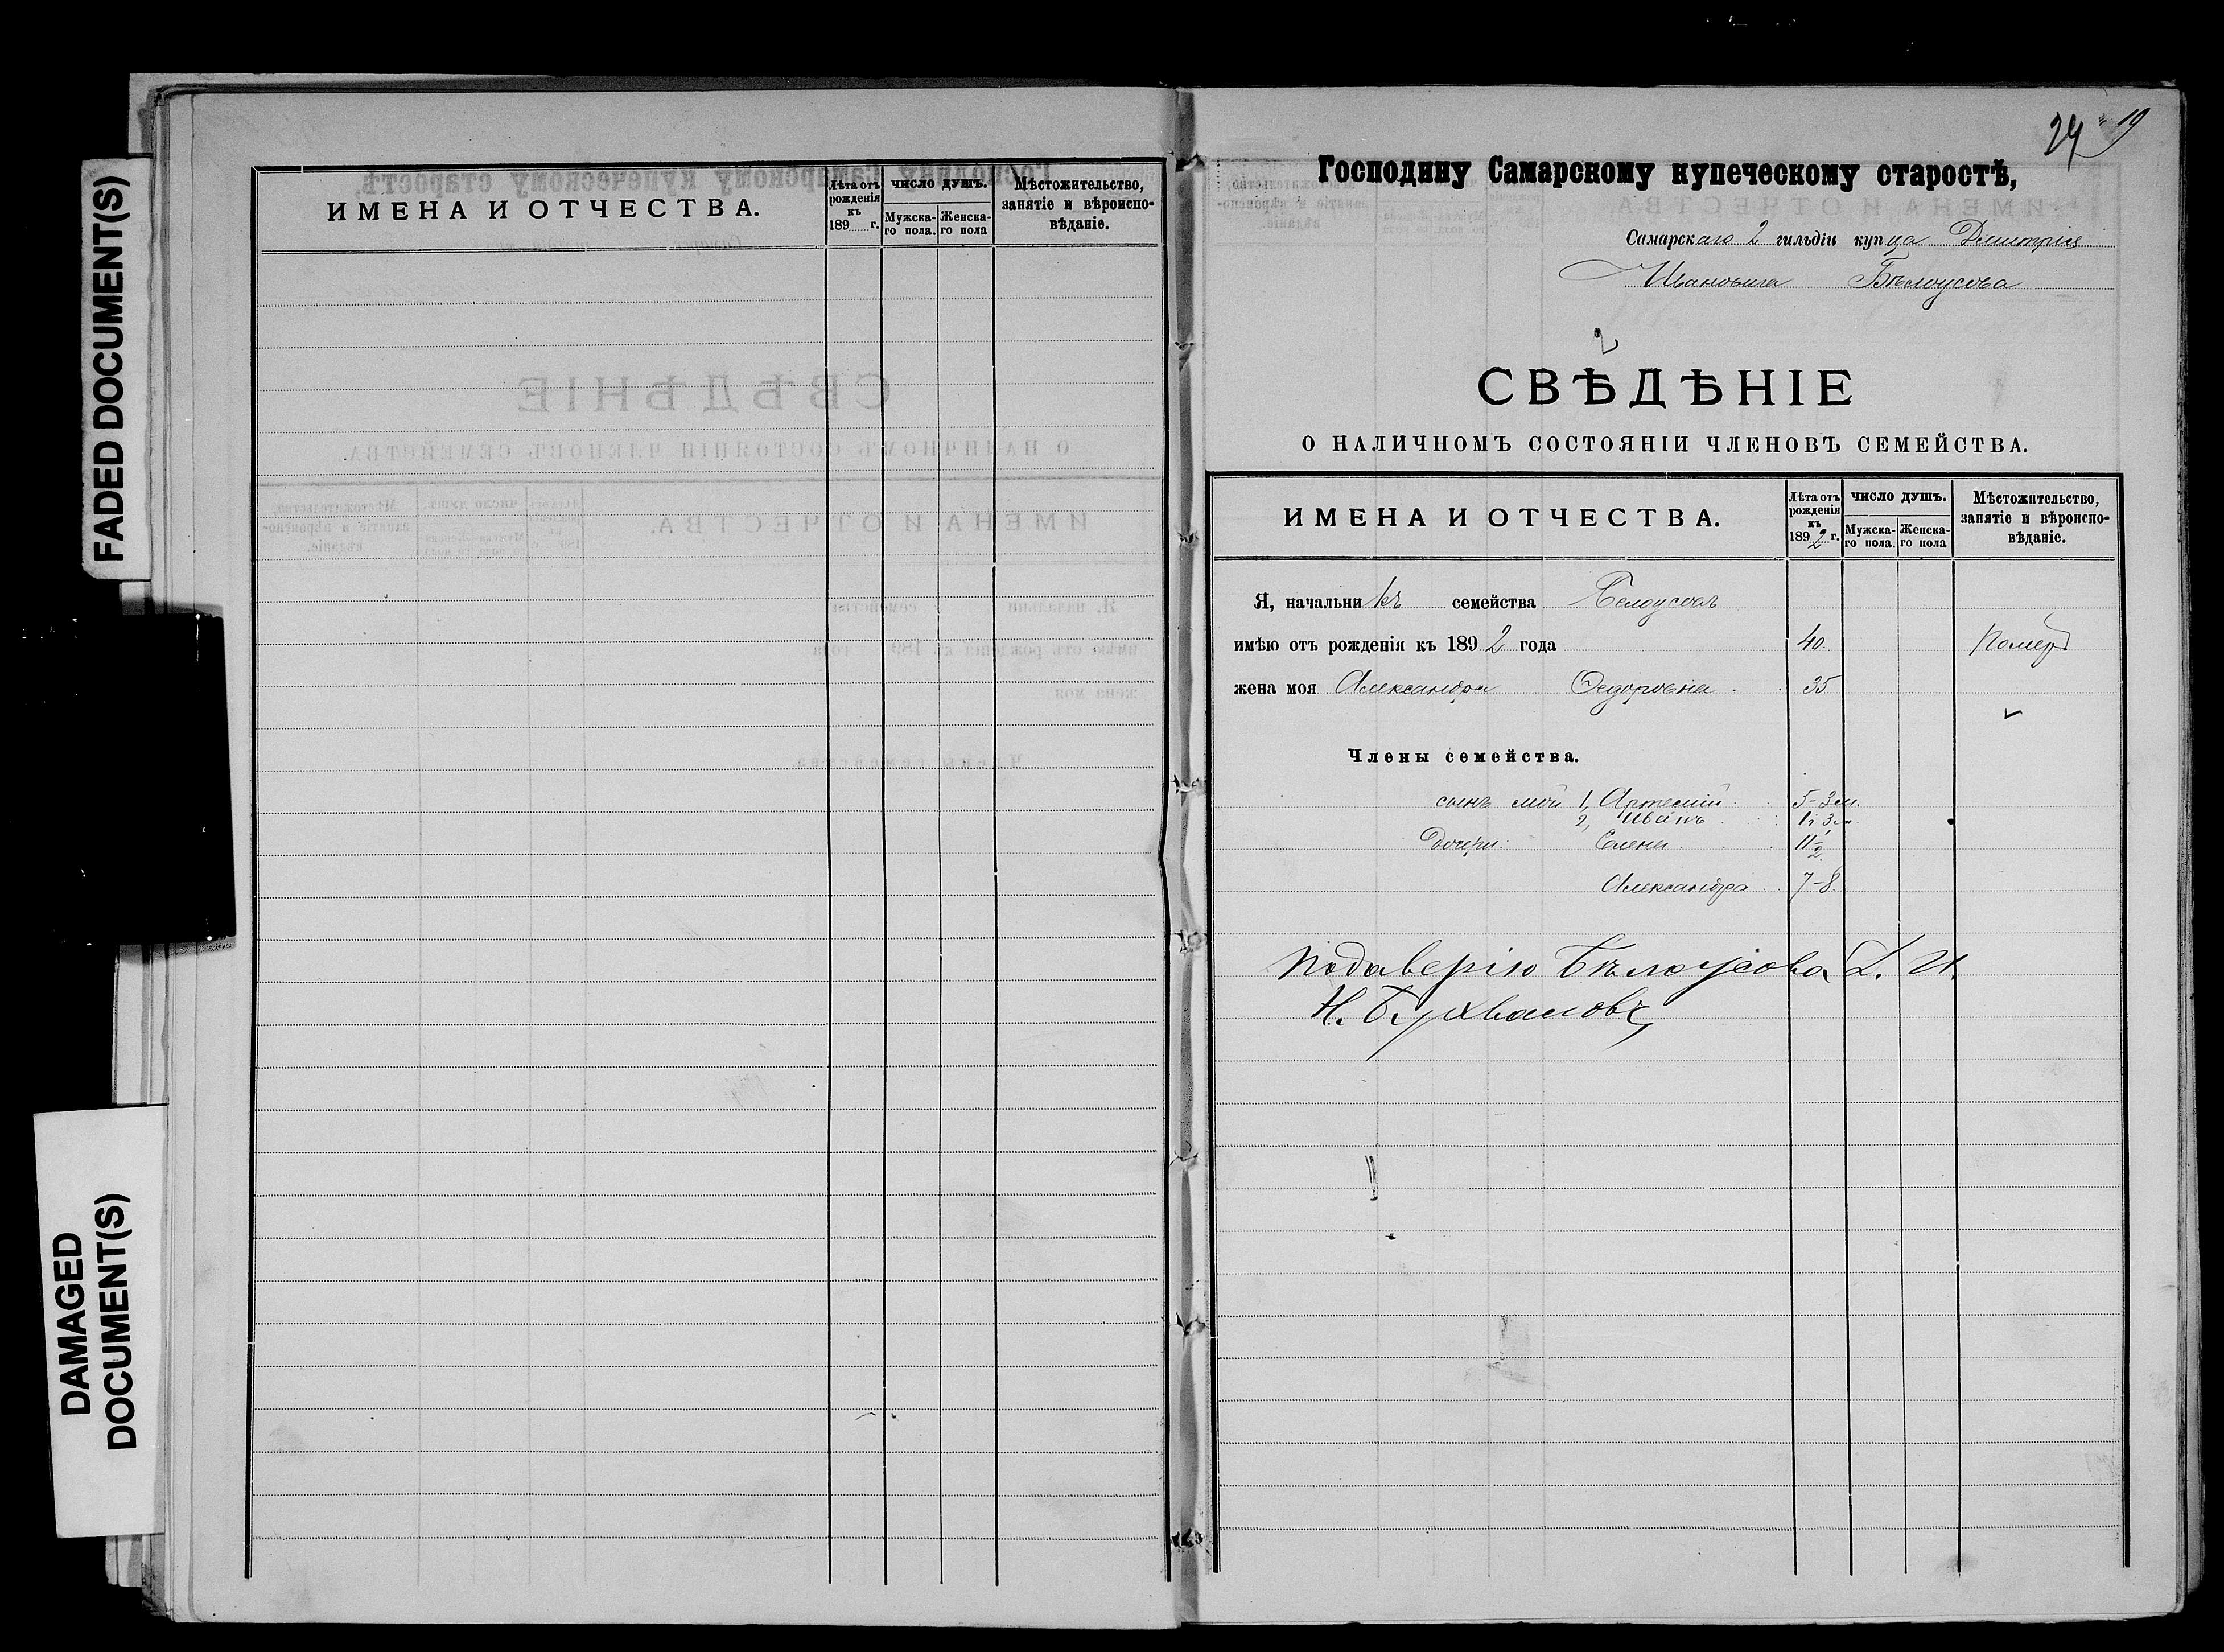 FADED DOCUMENT(S)
DAMAGED
DOCUMENT(S)
ИМЕНА И ОТЧЕСТВА.
Лѣта отъ рожденія къ 189 г.
ЧИСЛО ДУШЪ.
Мужска-го пола.
Женска-го пола
Мѣстожительство, занятіе и вѣроиспо-вѣданіе.
24 19
Господину Самарскому купеческому старостѣ,
Самарскаго 2 гильдіи купца Дмитрія
Ивановича Бѣлоусова
2
СВѢДѢНІЕ
О НАЛИЧНОМЪ СОСТОЯНІИ ЧЛЕНОВЪ СЕМЕЙСТВА.
ИМЕНА И ОТЧЕСТВА.
Лѣта отъ рожденія къ 1892 г.
ЧИСЛО ДУШЪ.
Мужска-го пола.
Женска-го пола
Мѣстожительство, занятіе и вѣроиспо-вѣданіе.
Я, начальникъ семейства Белоусовъ
имѣю отъ рожденія къ 1892 года 40. Померъ
жена моя Александра Ѳедоровна 35
Члены семейства.
сынъ мой 1, Артемий 5-3 м.
2, Иванъ 1 и 3 м.
Дочери: Елена 11-2.
Александра 7-8.
Подаверію Бѣлоусова Д. И.
Н.